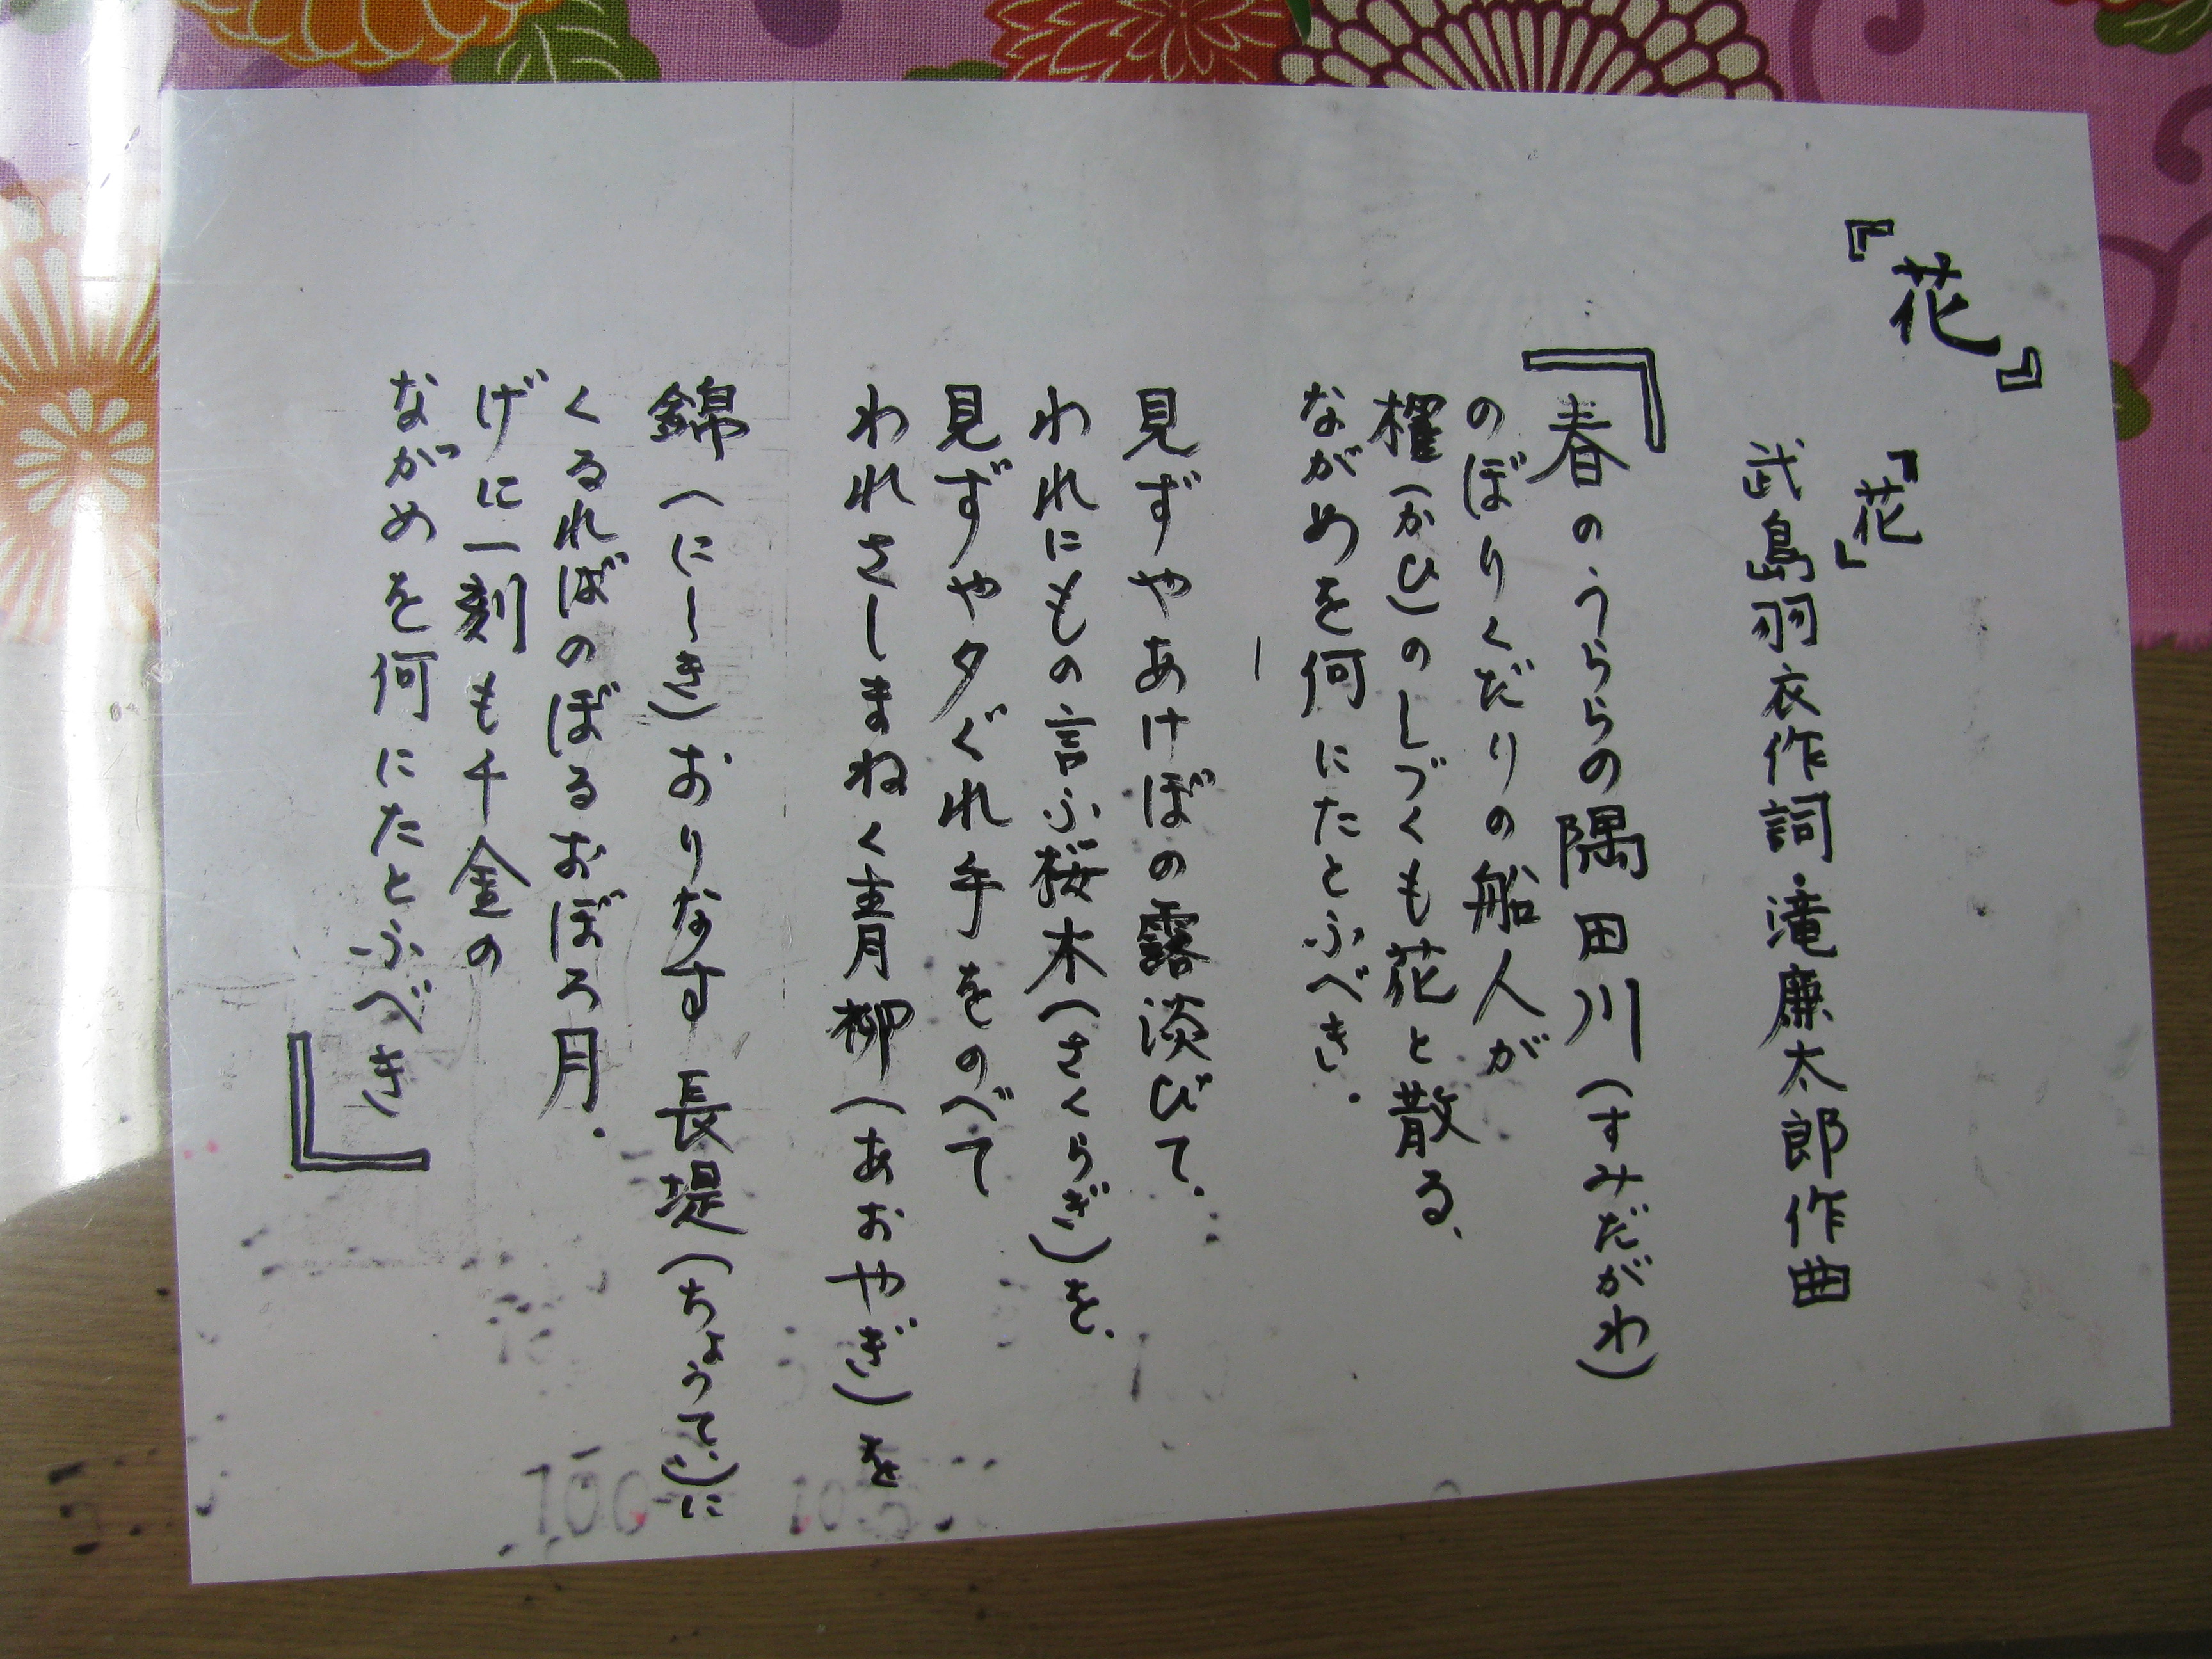 『花』
「花」
武島羽衣作詞・滝廉太郎作曲
「春のうららの隅田川(すみだがわ)
のぼりくだりの船人が
櫂(かひ)のしづくも花と散る、
ながめを何にたとふべき.
見ずやあけぼの露淡びて.
われにもの言ふ桜木(さくらぎ)を.
見ずや夕ぐれ手をのべて
われさしまねく青柳(あおやぎ)を
錦(にしき)おりなす長堤(ちょうてい)に
くるればのぼるおぼろ月.
げに一刻も千金の
ながめを何にたとふべき」
100